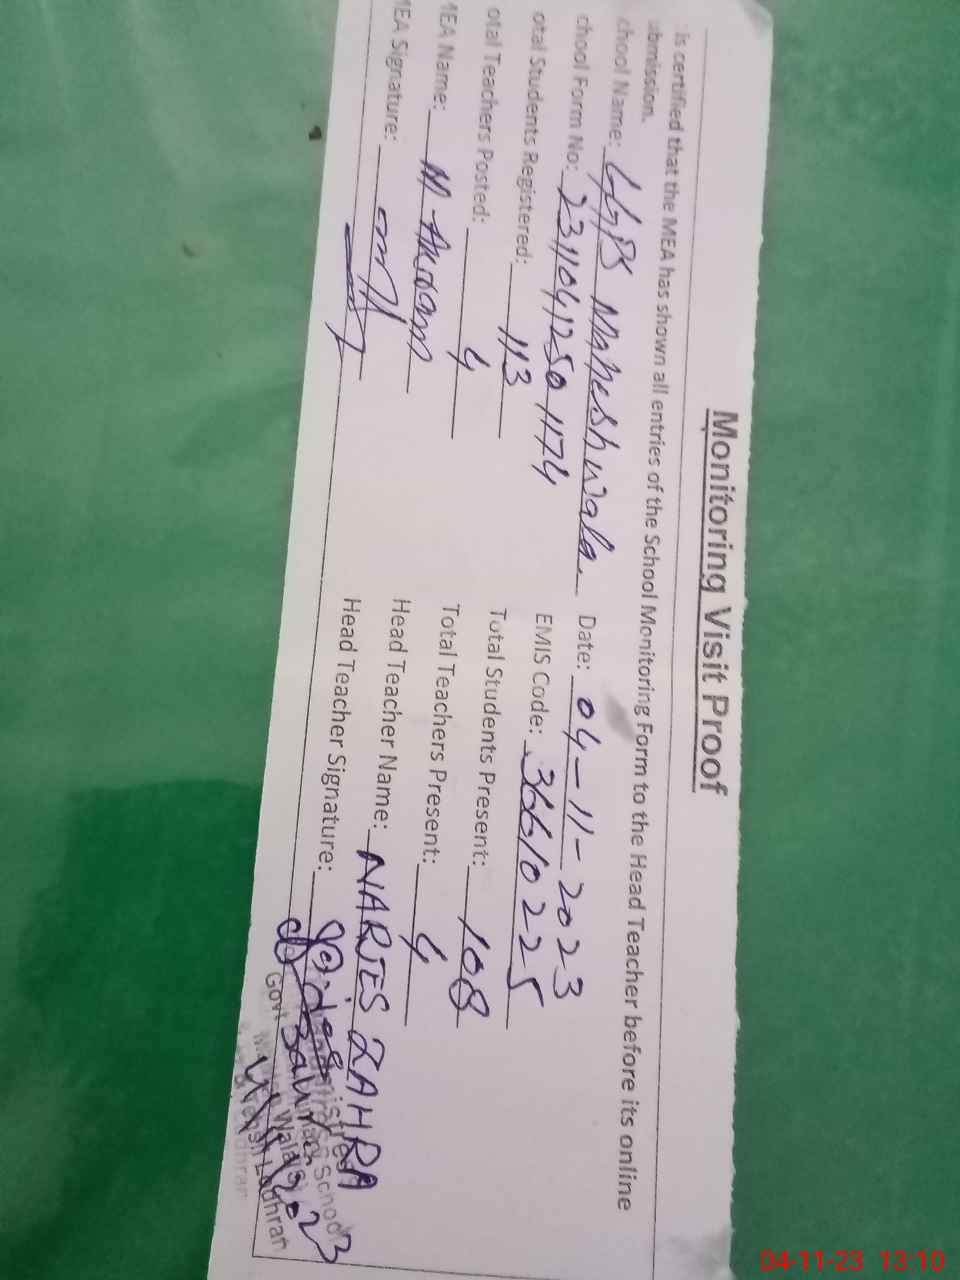 Monitoring Visit Proof
is certified that the MEA has shown all entries of the School Monitoring Form to the Head Teacher before its online
ubmission.
chool Name: GGPS Mahesh wala Date: 04-11-2023
chool Form No: 23110412501174 EMIS Code: 36610225
otal Students Registered: 113 Total Students Present: 108
otal Teachers Posted: 4 Total Teachers Present: 4
MEA Name: M Akram Head Teacher Name: NARJES ZAHRA
MEA Signature: Head Teacher Signature:
Govt
School
Wala
Lodhran
04-11-23 13:10